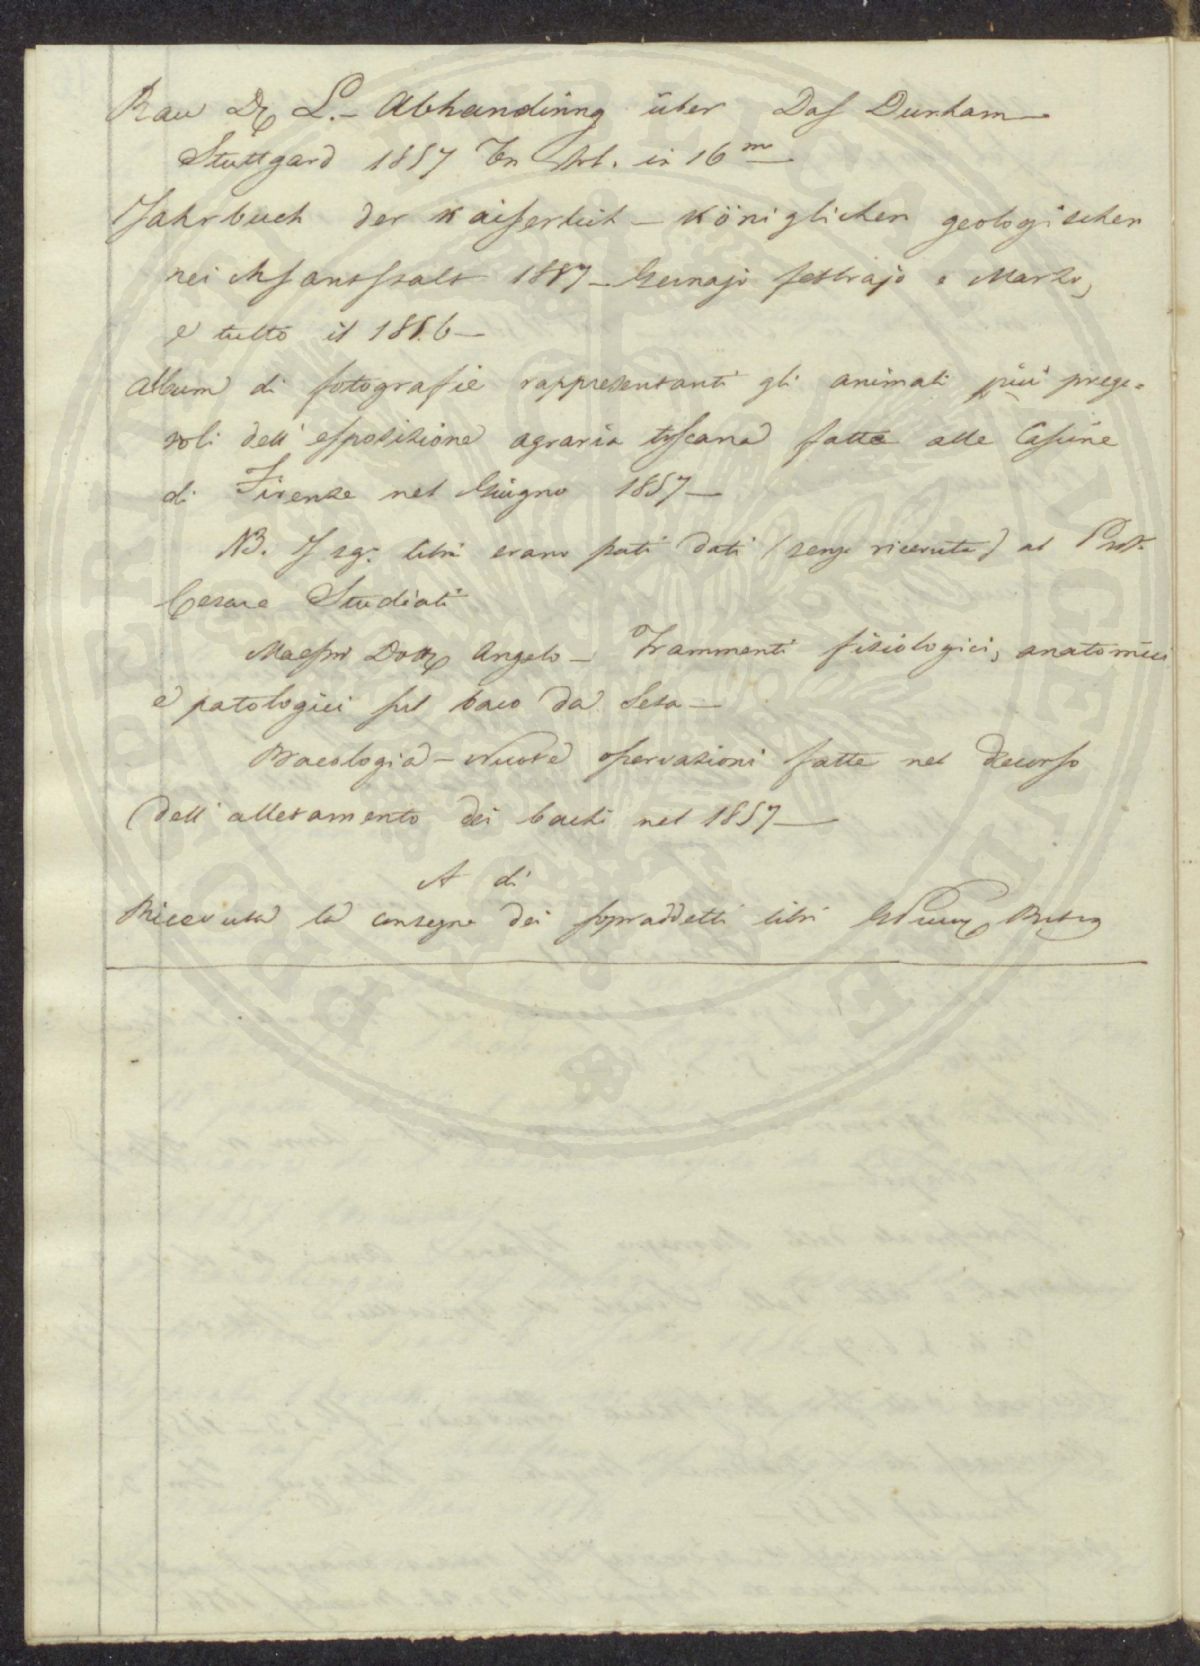 Rau Dr L. – Abhandlung über Das Durham –
Stuttgard 1857 in 16mo
Jahrbuch der kaiserlich – königlichen geologischen
reichsanstalt 1857 – Gennajo febbrajo e Marzo,
e tutto il 1856 –
Album di fotografie rappresentanti gli animali più prege=
voli dell'esposizione agraria toscana fatta alle Cascine
di Firenze nel Giugno 1857 –
NB. I sgi libri erano stati dati (senza ricevuta) al Prof.
Cesare Studiati
Maestri Dottr Angelo – Frammenti fisiologici, anatomici
e patologici sul baco da Seta –
Bacologia – Nuove osservazioni fatte nel decorso
dell'allevamento dei bachi nel 1857 –
A di
Ricevuta la consegna dei sopraddetti libri